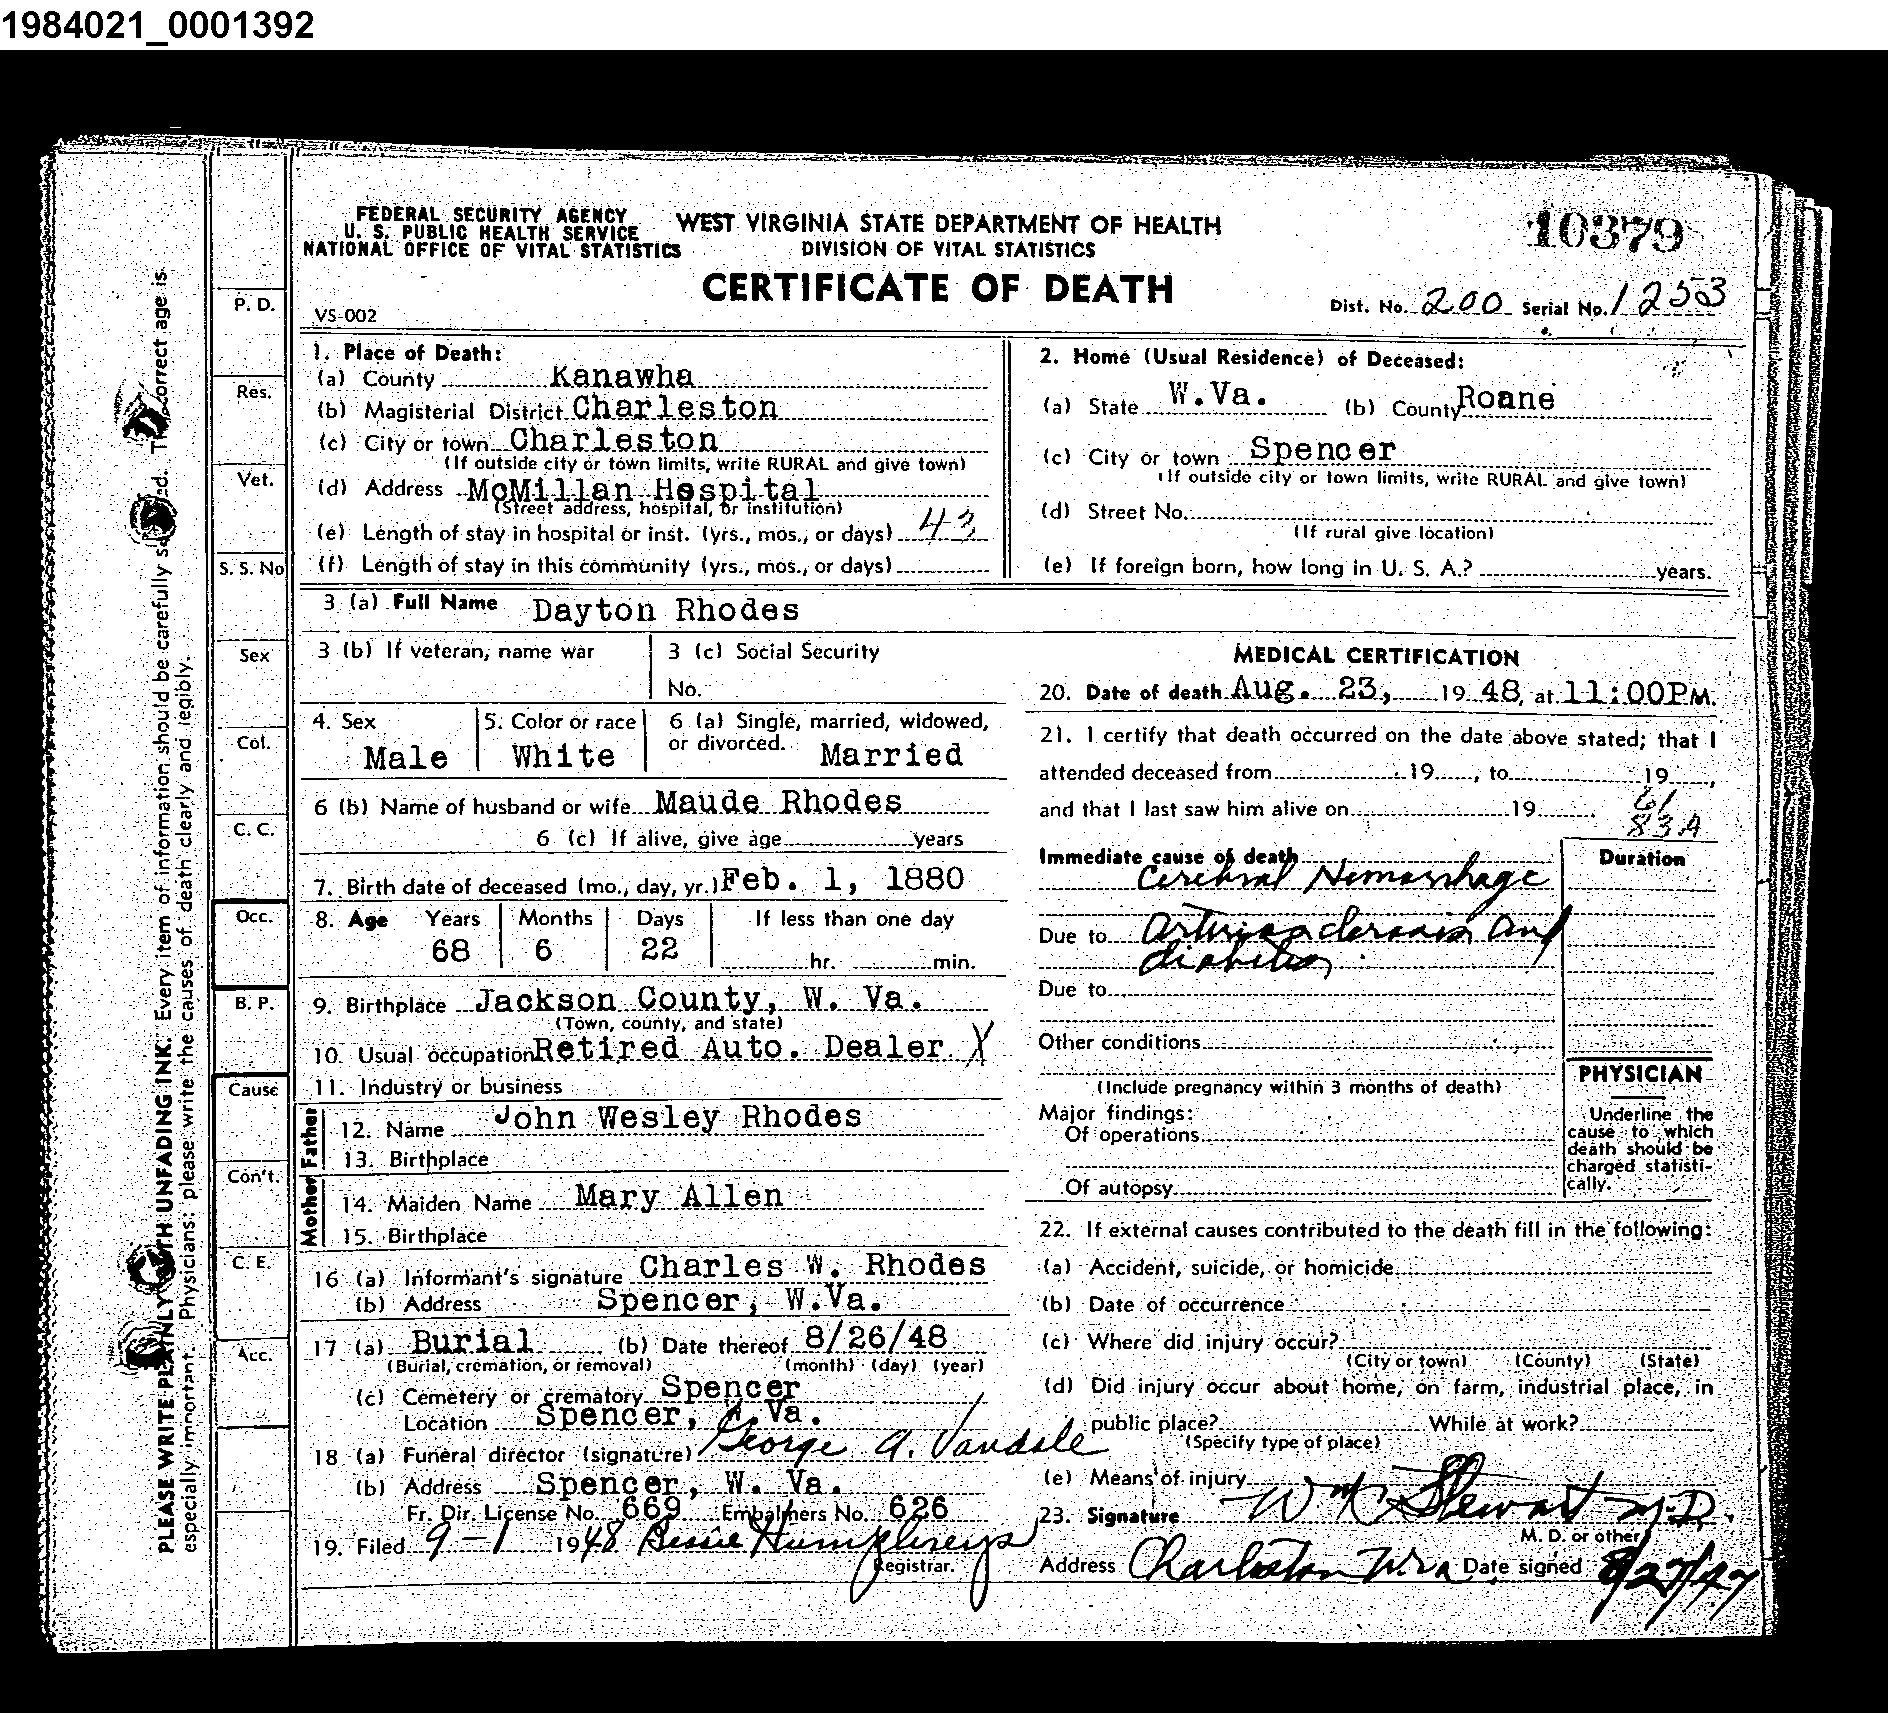 1984021_0001392
FEDERAL SECURITY AGENCY
U. S. PUBLIC HEALTH SERVICE
NATIONAL OFFICE OF VITAL STATISTICS
WEST VIRGINIA STATE DEPARTMENT OF HEALTH
DIVISION OF VITAL STATISTICS
CERTIFICATE OF DEATH
10379
VS-002
Dist. No. 200 Serial No. 1253
1. Place of Death:
(a) County Kanawha
(b) Magisterial District Charleston
(c) City or town Charleston
(If outside city or town limits, write RURAL and give town)
(d) Address McMillan Hospital
(Street address, hospital, or institution)
(e) Length of stay in hospital or inst. (yrs., mos., or days) 43
(f) Length of stay in this community (yrs., mos., or days)
2. Home (Usual Residence) of Deceased:
(a) State W.Va. (b) County Roane
(c) City or town Spencer
(If outside city or town limits, write RURAL and give town)
(d) Street No.
(If rural give location)
(e) If foreign born, how long in U. S. A.? years.
3 (a) Full Name Dayton Rhodes
3 (b) If veteran, name war
3 (c) Social Security
No.
4. Sex
Male
5. Color or race
White
6 (a) Single, married, widowed,
or divorced. Married
6 (b) Name of husband or wife Maude Rhodes
6 (c) If alive, give age years
7. Birth date of deceased (mo., day, yr.) Feb. 1, 1880
8. Age Years Months Days If less than one day
68 6 22 hr. min.
9. Birthplace Jackson County, W. Va.
(Town, county, and state)
10. Usual occupation Retired Auto. Dealer X
11. Industry or business
Father
12. Name John Wesley Rhodes
13. Birthplace
Mother
14. Maiden Name Mary Allen
15. Birthplace
16 (a) Informant's signature Charles W. Rhodes
(b) Address Spencer, W.Va.
17 (a) Burial (b) Date thereof 8/26/48
(Burial, cremation, or removal) (month) (day) (year)
(c) Cemetery or crematory Spencer
Location Spencer, W.Va.
18 (a) Funeral director (signature) George A. Vandale
(b) Address Spencer, W. Va.
Fr. Dir. License No. 669 Embalmers No. 626
19. Filed 9-1 1948 Bessie Humphreys
Registrar.
MEDICAL CERTIFICATION
20. Date of death Aug. 23, 19 48, at 11:00P M.
21. I certify that death occurred on the date above stated; that I
attended deceased from 19 , to 19 ,
and that I last saw him alive on 19
61
83A
Immediate cause of death
Cerebral Hemorrhage
Duration
Due to Arteriosclerosis and
diabetes
Due to
Other conditions
(Include pregnancy within 3 months of death)
Major findings:
Of operations
Of autopsy
PHYSICIAN
Underline the
cause to which
death should be
charged statisti-
cally.
22. If external causes contributed to the death fill in the following:
(a) Accident, suicide, or homicide
(b) Date of occurrence
(c) Where did injury occur?
(City or town) (County) (State)
(d) Did injury occur about home, on farm, industrial place, in
public place? While at work?
(Specify type of place)
(e) Means of injury
23. Signature Wm C Stewart M.D.
M. D. or other
Address Charleston W.Va Date signed 8/27/47
P. D.
Res.
Vet.
S. S. No
Sex
Col.
C. C.
Occ.
B. P.
Cause
Con't.
C. E.
Acc.
PLEASE WRITE PLAINLY WITH UNFADING INK. Every item of information should be carefully The correct age is
especially important. Physicians: please write the causes of death clearly and legibly.